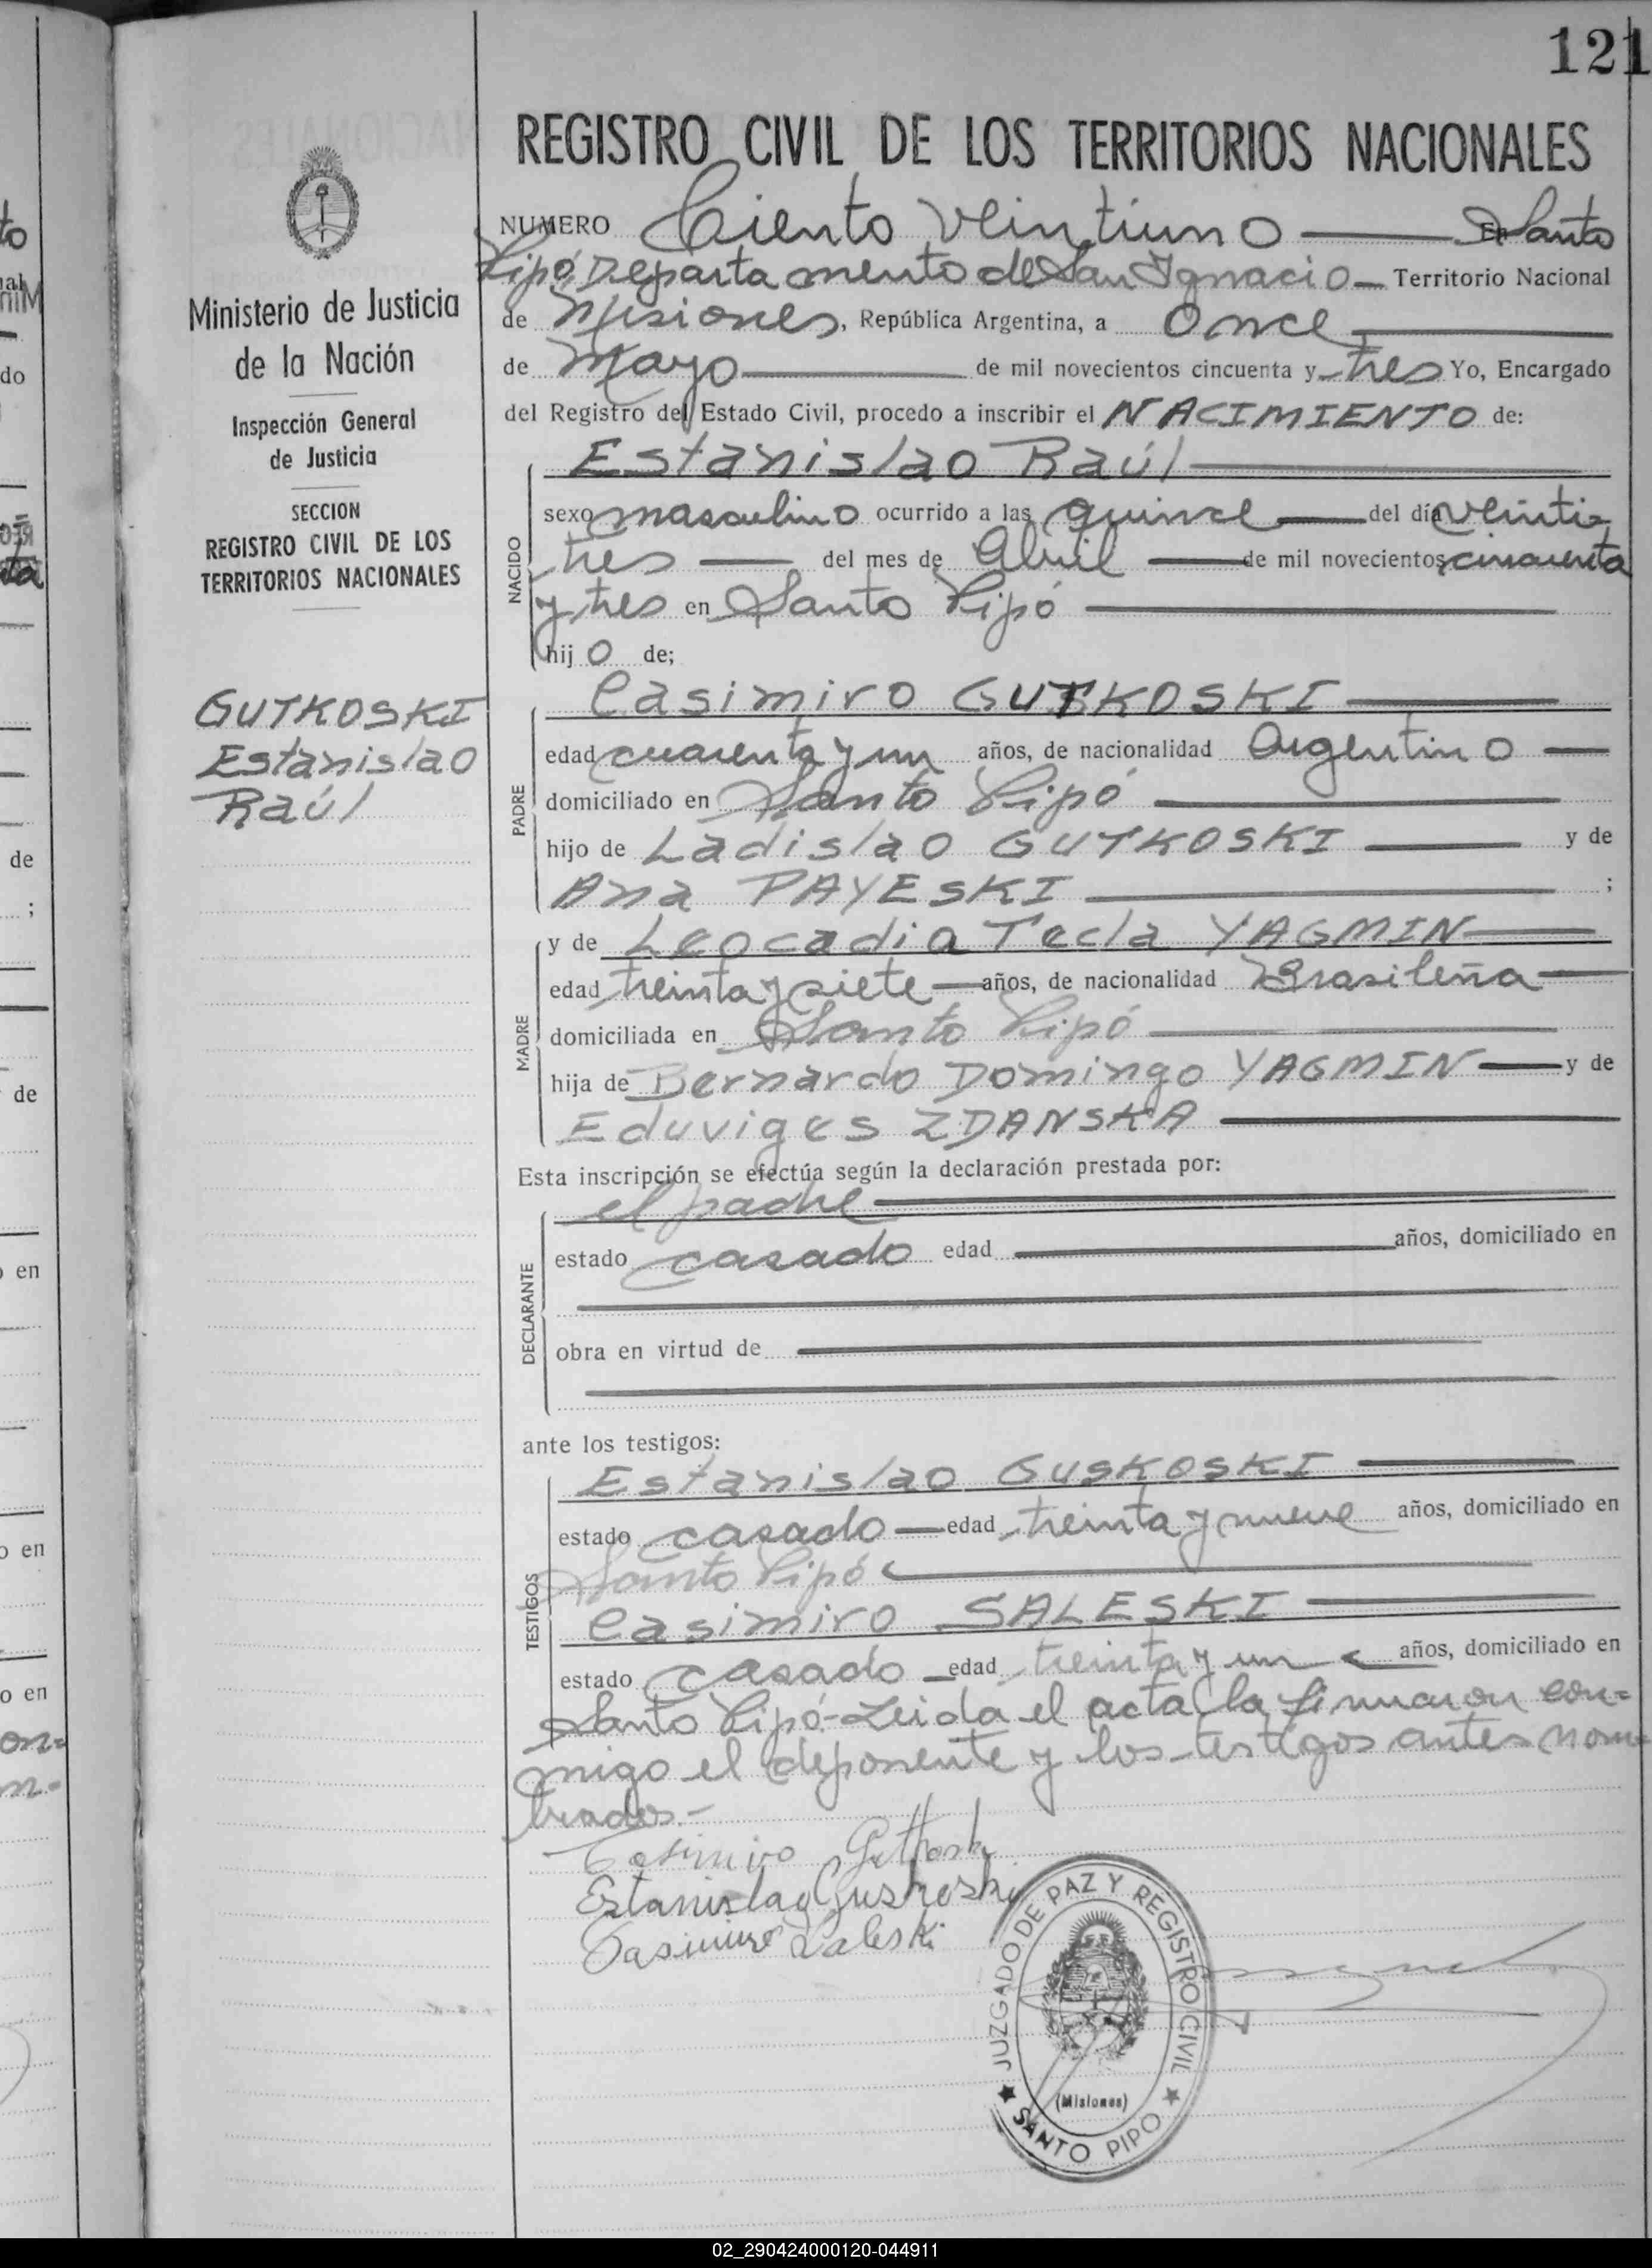 121
REGISTRO CIVIL DE LOS TERRITORIOS NACIONALES
Ministerio de Justicia
de la Nación
Inspección General
de Justicia
SECCION
REGISTRO CIVIL DE LOS
TERRITORIOS NACIONALES
GUTKOSKI
Estanislao
Raúl
NUMERO Ciento veintiuno — En Santo
Pipó, Departamento de San Ignacio — Territorio Nacional
de Misiones, República Argentina, a once
de Mayo — de mil novecientos cincuenta y tres Yo, Encargado
del Registro del Estado Civil, procedo a inscribir el NACIMIENTO de:
NACIDO
Estanislao Raúl —
sexo masculino ocurrido a las quince — del día veinti-
tres — del mes de Abril — de mil novecientos cincuenta
y tres en Santo Pipó —
hij o de;
PADRE
Casimiro GUTKOSKI —
edad cuarenta y un años, de nacionalidad Argentino —
domiciliado en Santo Pipó —
hijo de Ladislao GUTKOSKI — y de
Ana PAYESKI — ;
MADRE
y de Leocadia Tecla YAGMIN —
edad treinta y siete — años, de nacionalidad Brasileña —
domiciliada en Santo Pipó —
hija de Bernardo Domingo YAGMIN — y de
Eduviges ZDANSKA —
Esta inscripción se efectúa según la declaración prestada por:
DECLARANTE
el padre —
estado casado edad — años, domiciliado en
obra en virtud de —
ante los testigos:
TESTIGOS
Estanislao GUSKOSKI —
estado casado — edad treinta y nueve años, domiciliado en
Santo Pipó —
Casimiro SALESKI —
estado casado — edad treinta y un — años, domiciliado en
Santo Pipó - Leida el acta la firmaron con=
migo el deponente y los testigos antes nom=
brados.-
Casimiro Gutkoski
Estanislao Guskoski
Casimiro Saleski
JUZGADO DE PAZ Y REGISTRO CIVIL
(Misiones)
★ SANTO PIPO ★
02_290424000120-044911